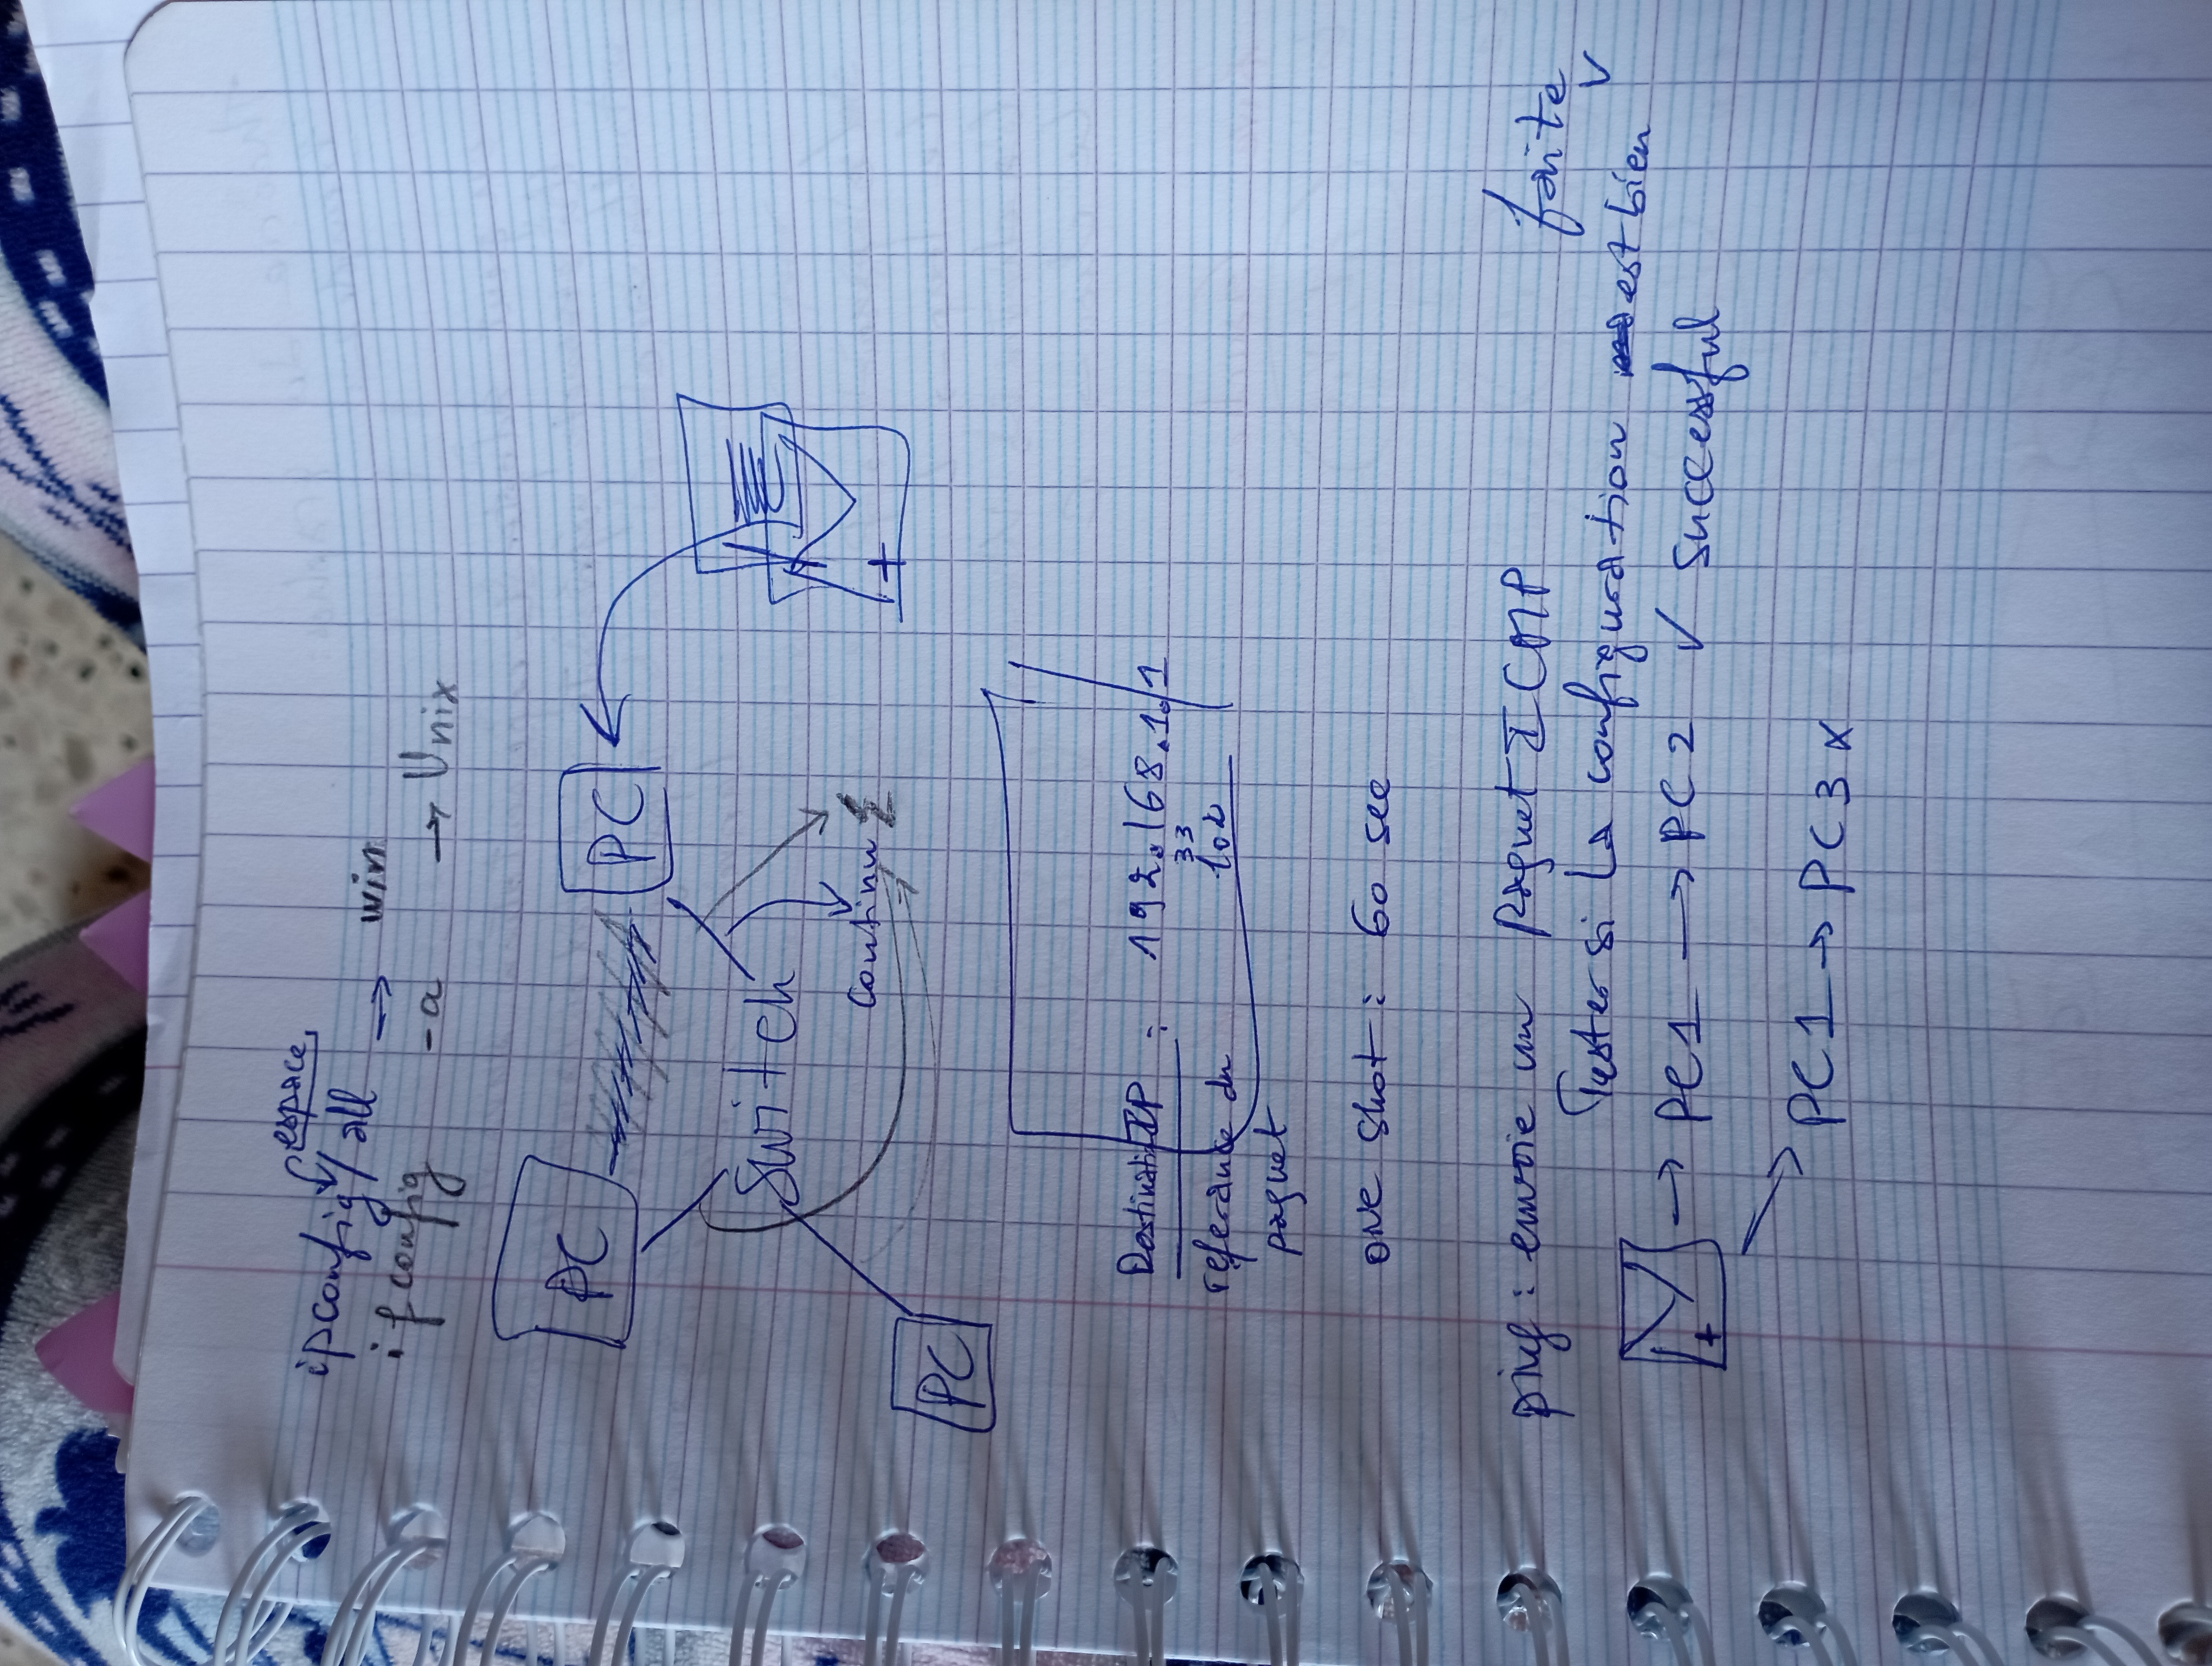 espace
ipconfig / all → win
ifconfig -a → Unix
PC
PC
Switch
continu
PC
Destinati IP : 192.168.1.1
33
référance du 102
paquet
one shot : 60 sec
ping : envoie un Paquet ICMP
faite
Tester si la configuration est bien
+ → PC1 → PC2 ✓ Successful
PC1 → PC3 x